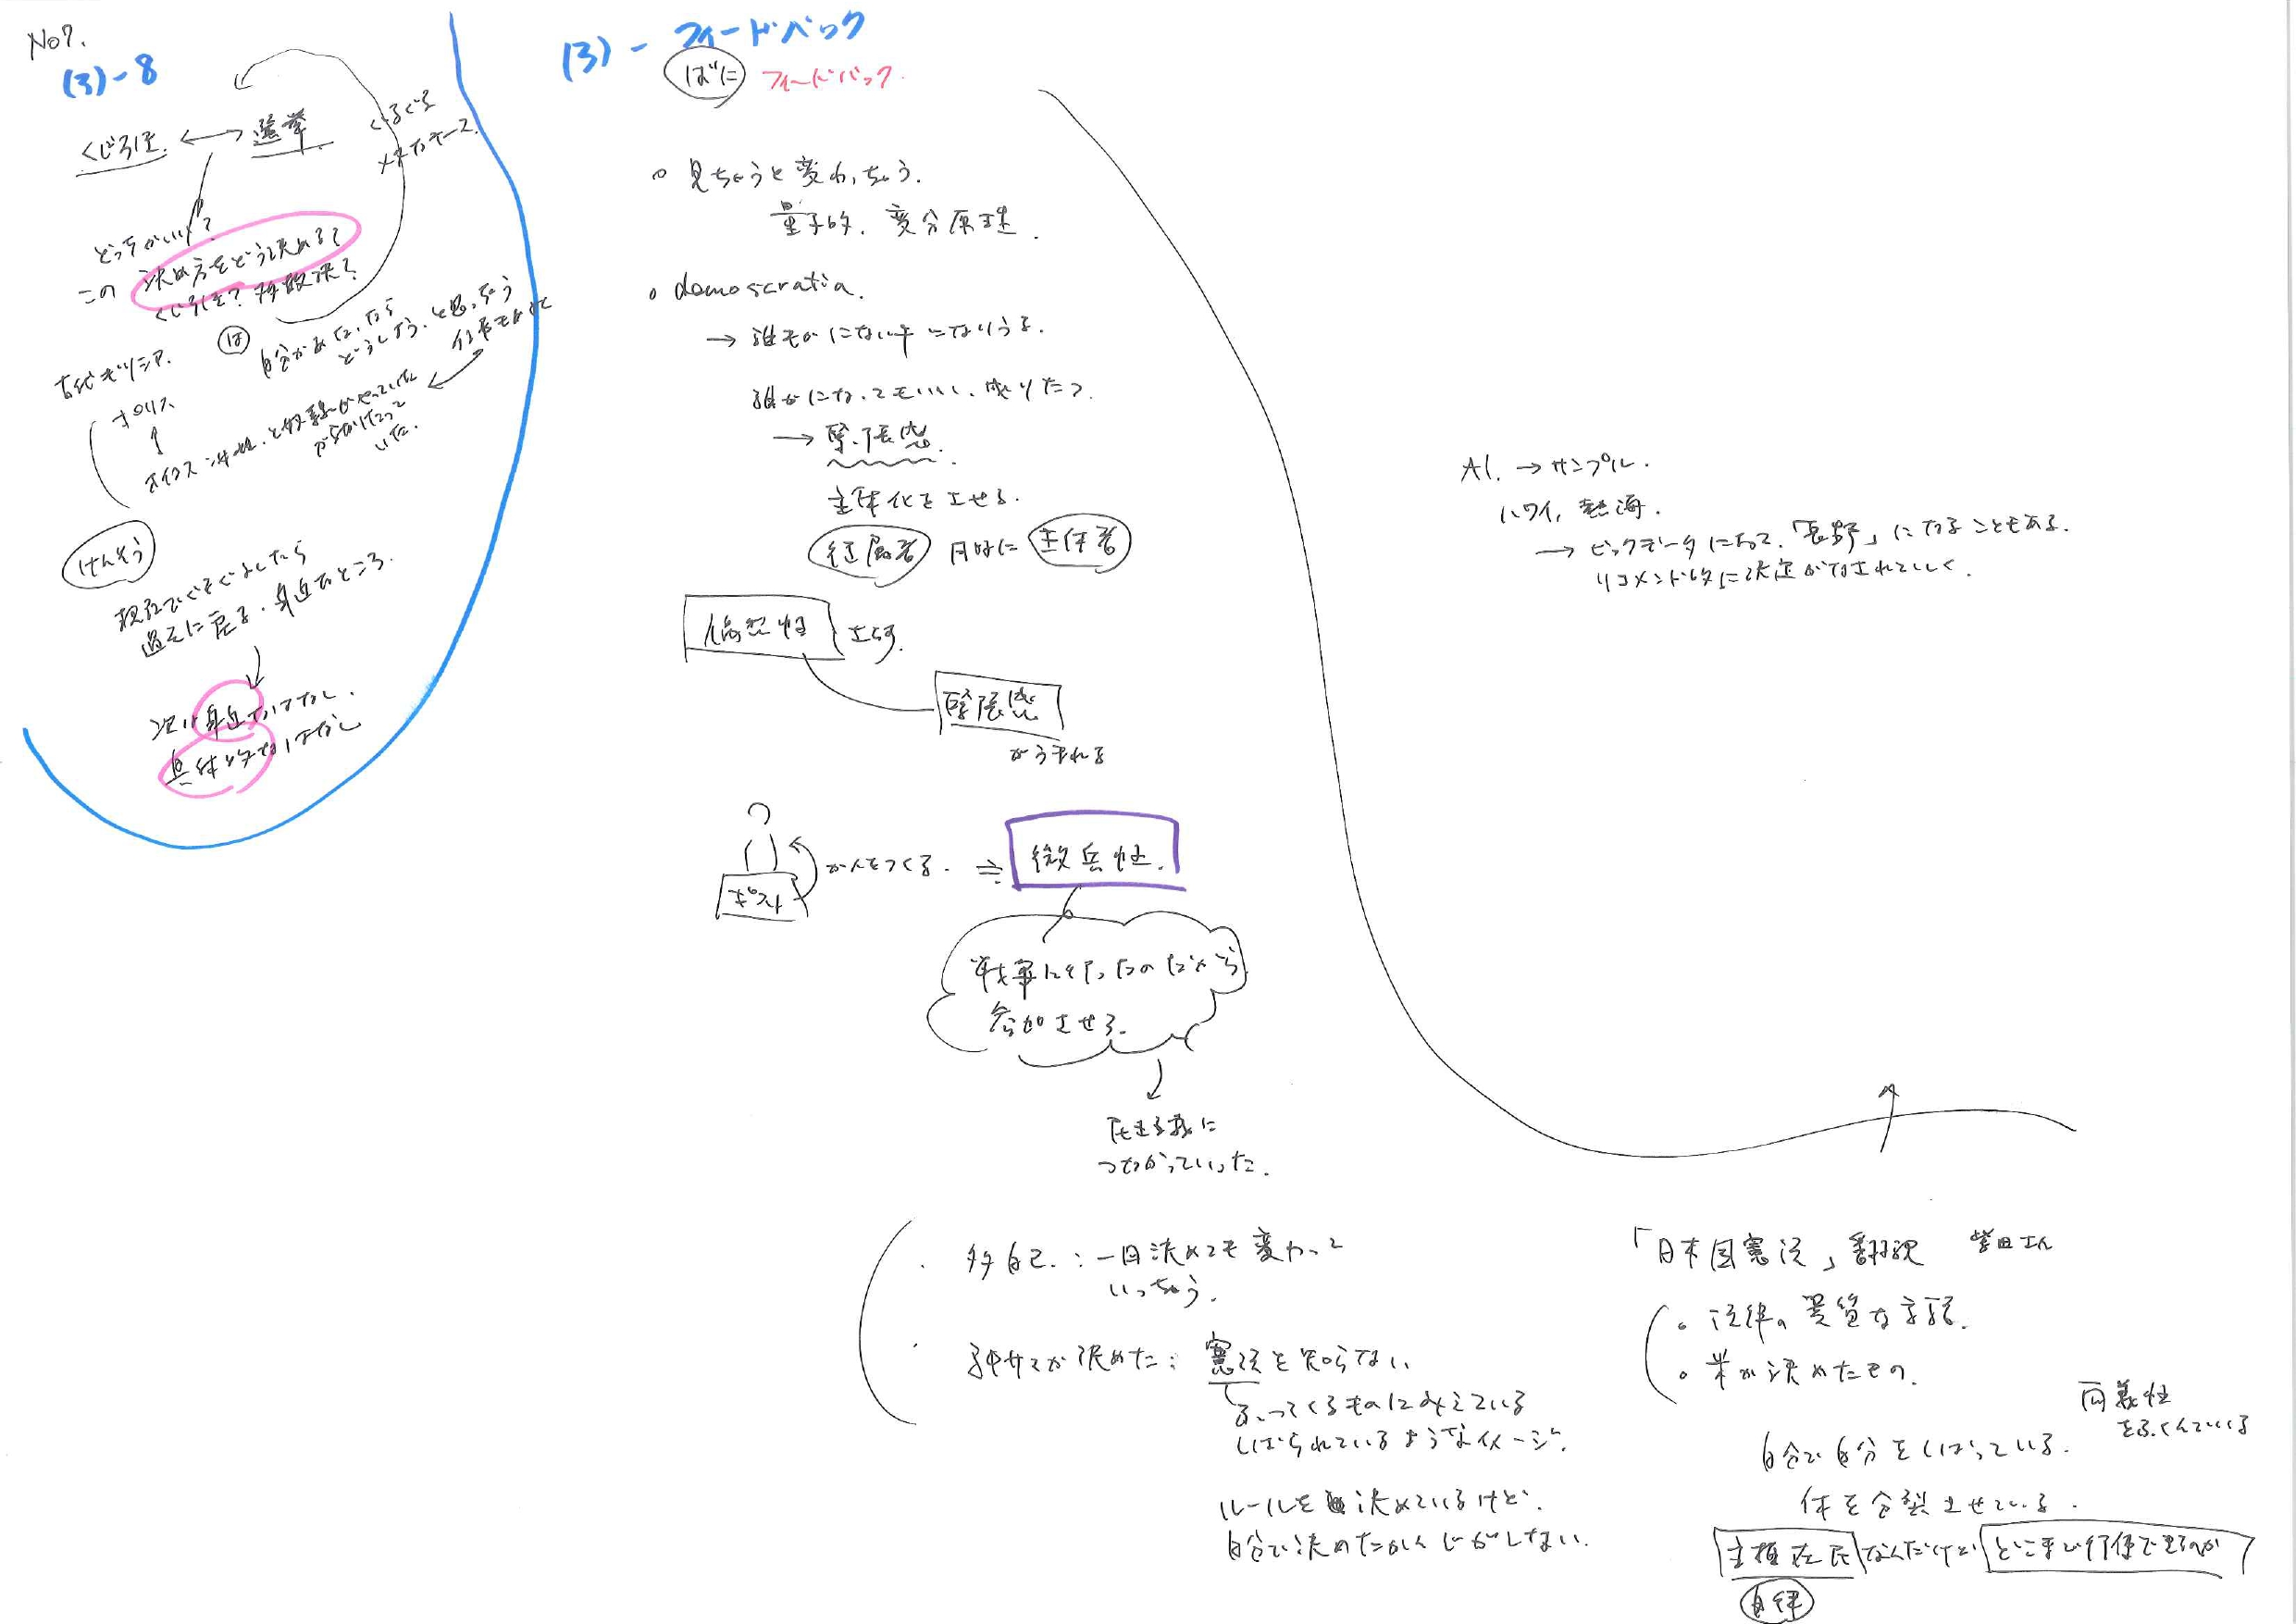 No7.
(3)-8
くじ引き ←→ 選挙
ぐるぐる
メタなケース.
どっちがいい?
この 決め方をどう決める?
くじ引き? 多数決?
自分があたったら
どうしよう、と思っちゃう
古代ギリシア.
ポリス
↑
オイコス：女性、と奴隷がやっていた
いた.
けんそう
過去に戻る・身近なところ.
次は身近なはなし.
具体的なはなし
(3) - フィードバック
ばに フィードバック.
○ 見ちゃうと変わっちゃう.
量子的、変分原理.
○ demoscratia.
→ 誰もがにない手になりうる.
誰がになってもいいし、成りたつ.
→ 緊張感.
主体化をさせる.
従属者 同時に 主体者
偶然性
緊張感
がうまれる
ポスト
が人をつくる. ≒ 徴兵性.
戦争に行ったのだから
参加させろ.
↓
民主主義に
つながっていった.
・ 多自己：一回決めても変わって
いっちゃう.
・ 神サマが決めた：憲法を知らない
ふってくるものにみえている
しばられているようなイメージ.
ルールを決めているけど、
自分で決めたかんじがしない.
AI. → サンプル.
ハワイ, 熱海.
→ ビックデータによって、「長野」になることもある.
リコメンド的に決定がなされていく.
「日本国憲法」翻訳 柴田さん
○ 法律の異質な言語.
○ 米が決めたもの.
両義性
をふくんでいる
自分で自分をしばっている.
体を分裂させている.
主権在民 なんだけど どこまで行使できるのか
自律